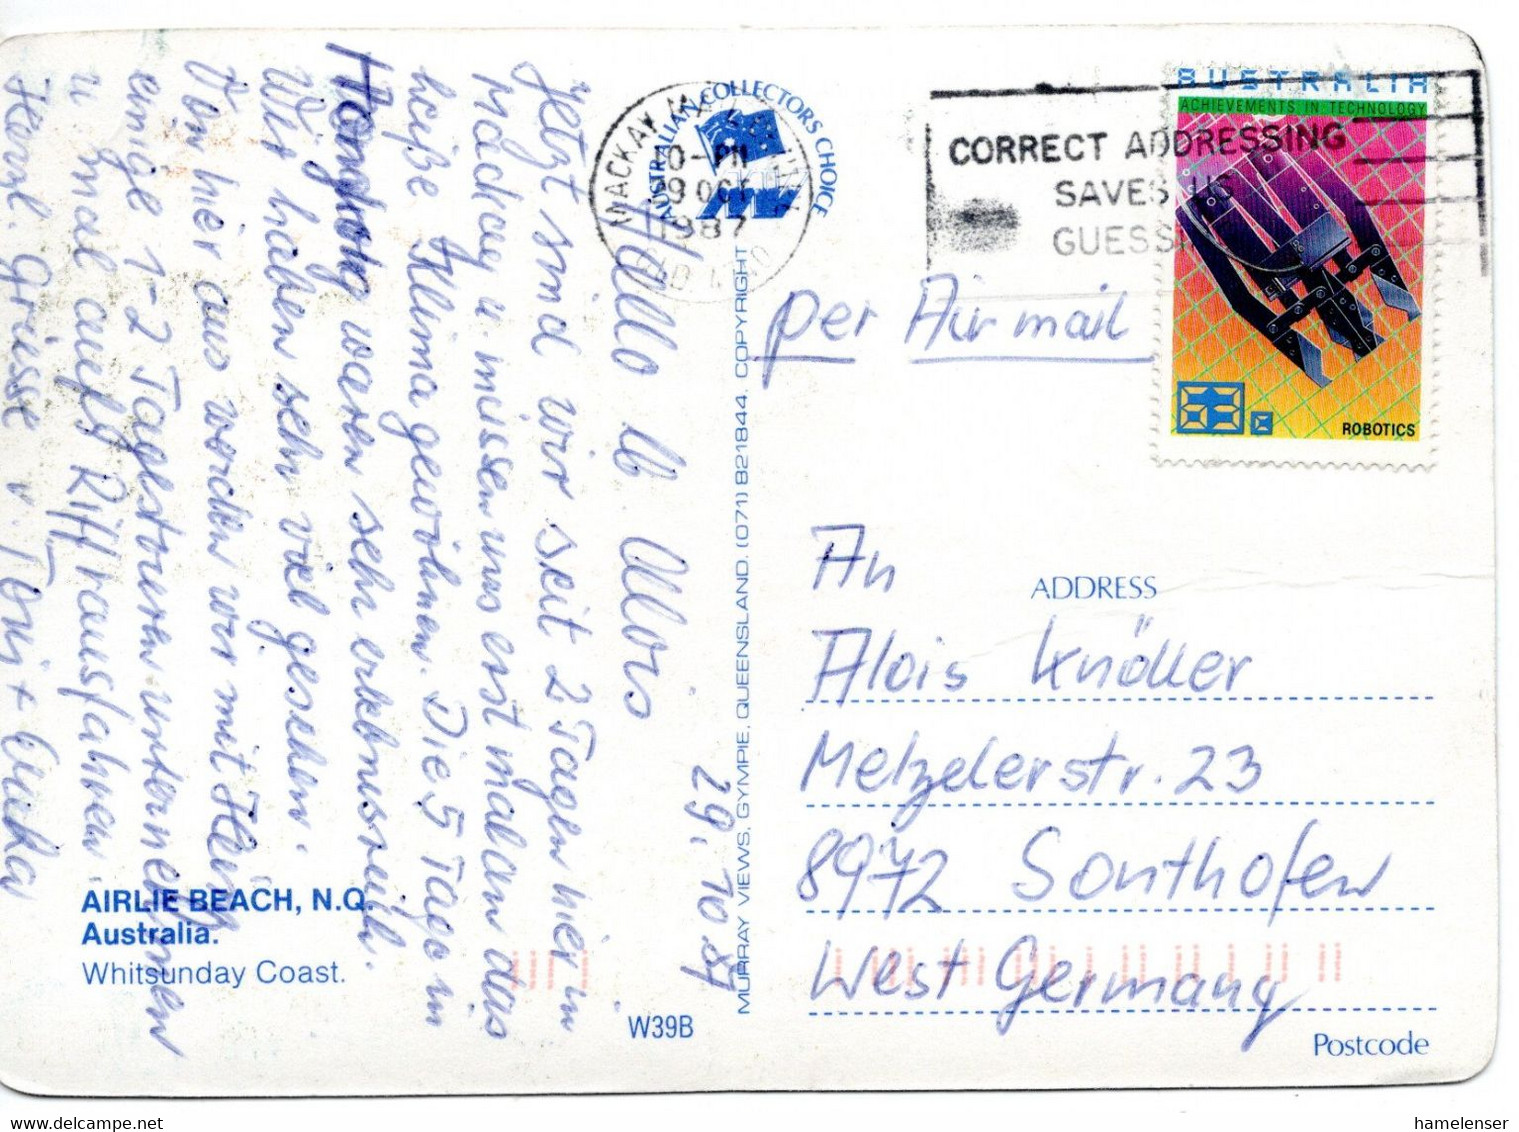 29.10.87
Hallo lb. Alois
Jetzt sind wir seit 2 Tagen hier in
Mackay u. müssen uns erst mal an das
heiße Klima gewöhnen. Die 5 Tage in
Hongkong waren sehr erlebnisreich.
Wir haben sehr viel gesehen.
Von hier aus werden wir mit Heinz
einige 1-2 Tagestouren unternehmen
u. mal aufs Riff rausfahren.
Herzl. Grüsse v. Toni +
AIRLIE BEACH, N.Q.
Australia.
Whitsunday Coast.
W39B
MURRAY VIEWS, GYMPIE, QUEENSLAND. (071) 821844 COPYRIGHT
AUSTRALIAN COLLECTORS CHOICE
MACKAY
-PM
29 OCT
1987
QLD
CORRECT ADDRESSING
SAVES US
GUESSI
AUSTRALIA
ACHIEVEMENTS IN TECHNOLOGY
63c
ROBOTICS
per Air mail
An
ADDRESS
Alois Knöller
Metzelerstr. 23
8972 Sonthofen
West Germany
Postcode
hamelenser